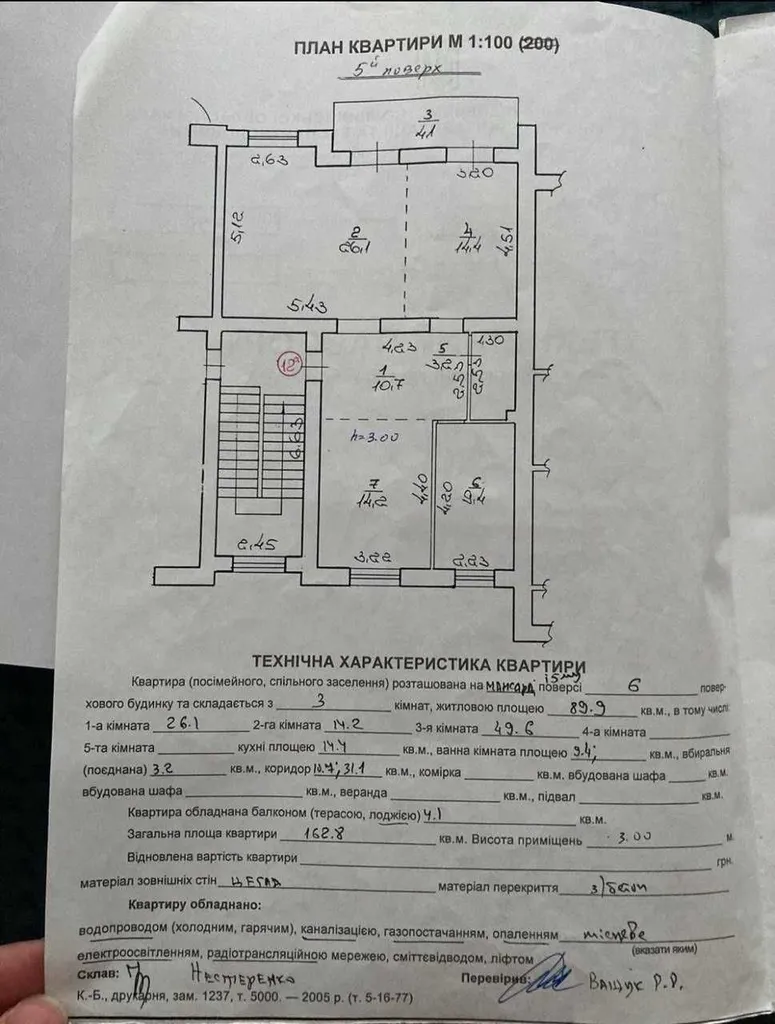 ПЛАН КВАРТИРИ М 1:100 (200)
5й поверх
3
4.1
2,63
3,20
5,12
2
26,1
4
14,4
4,51
5,43
4,23
1,30
5
3,2
12а
1
10,7
2,53
2,53
h=3.00
6,63
7
14,2
4,40
4,20
6
9,4
2,45
3,22
2,23
ТЕХНІЧНА ХАРАКТЕРИСТИКА КВАРТИРИ
Квартира (посімейного, спільного заселення) розташована на мансард і 5му поверсі 6 повер-
хового будинку та складається з 3 кімнат, житловою площею 89.9 кв.м., в тому числі:
1-а кімната 26.1 2-га кімната 14.2 3-я кімната 49.6 4-а кімната
5-та кімната кухні площею 14.4 кв.м., ванна кімната площею 9.4; кв.м., вбиральня
(поєднана) 3.2 кв.м., коридор 10.7; 31.1 кв.м., комірка кв.м. вбудована шафа кв.м.
вбудована шафа кв.м., веранда кв.м., підвал кв.м.
Квартира обладнана балконом (терасою, лоджією) 4.1 кв.м.
Загальна площа квартири 162.8 кв.м. Висота приміщень 3.00 м
Відновлена вартість квартири грн.
матеріал зовнішніх стін цегла матеріал перекриття з/бетон
Квартиру обладнано:
водопроводом (холодним, гарячим), каналізацією, газопостачанням, опаленням місцеве
(вказати яким)
електроосвітленням, радіотрансляційною мережею, сміттєвідводом, ліфтом
Склав: Нестеренко Перевірив: Ващук Р.Р.
К.-Б., друкарня, зам. 1237, т. 5000. — 2005 р. (т. 5-16-77)